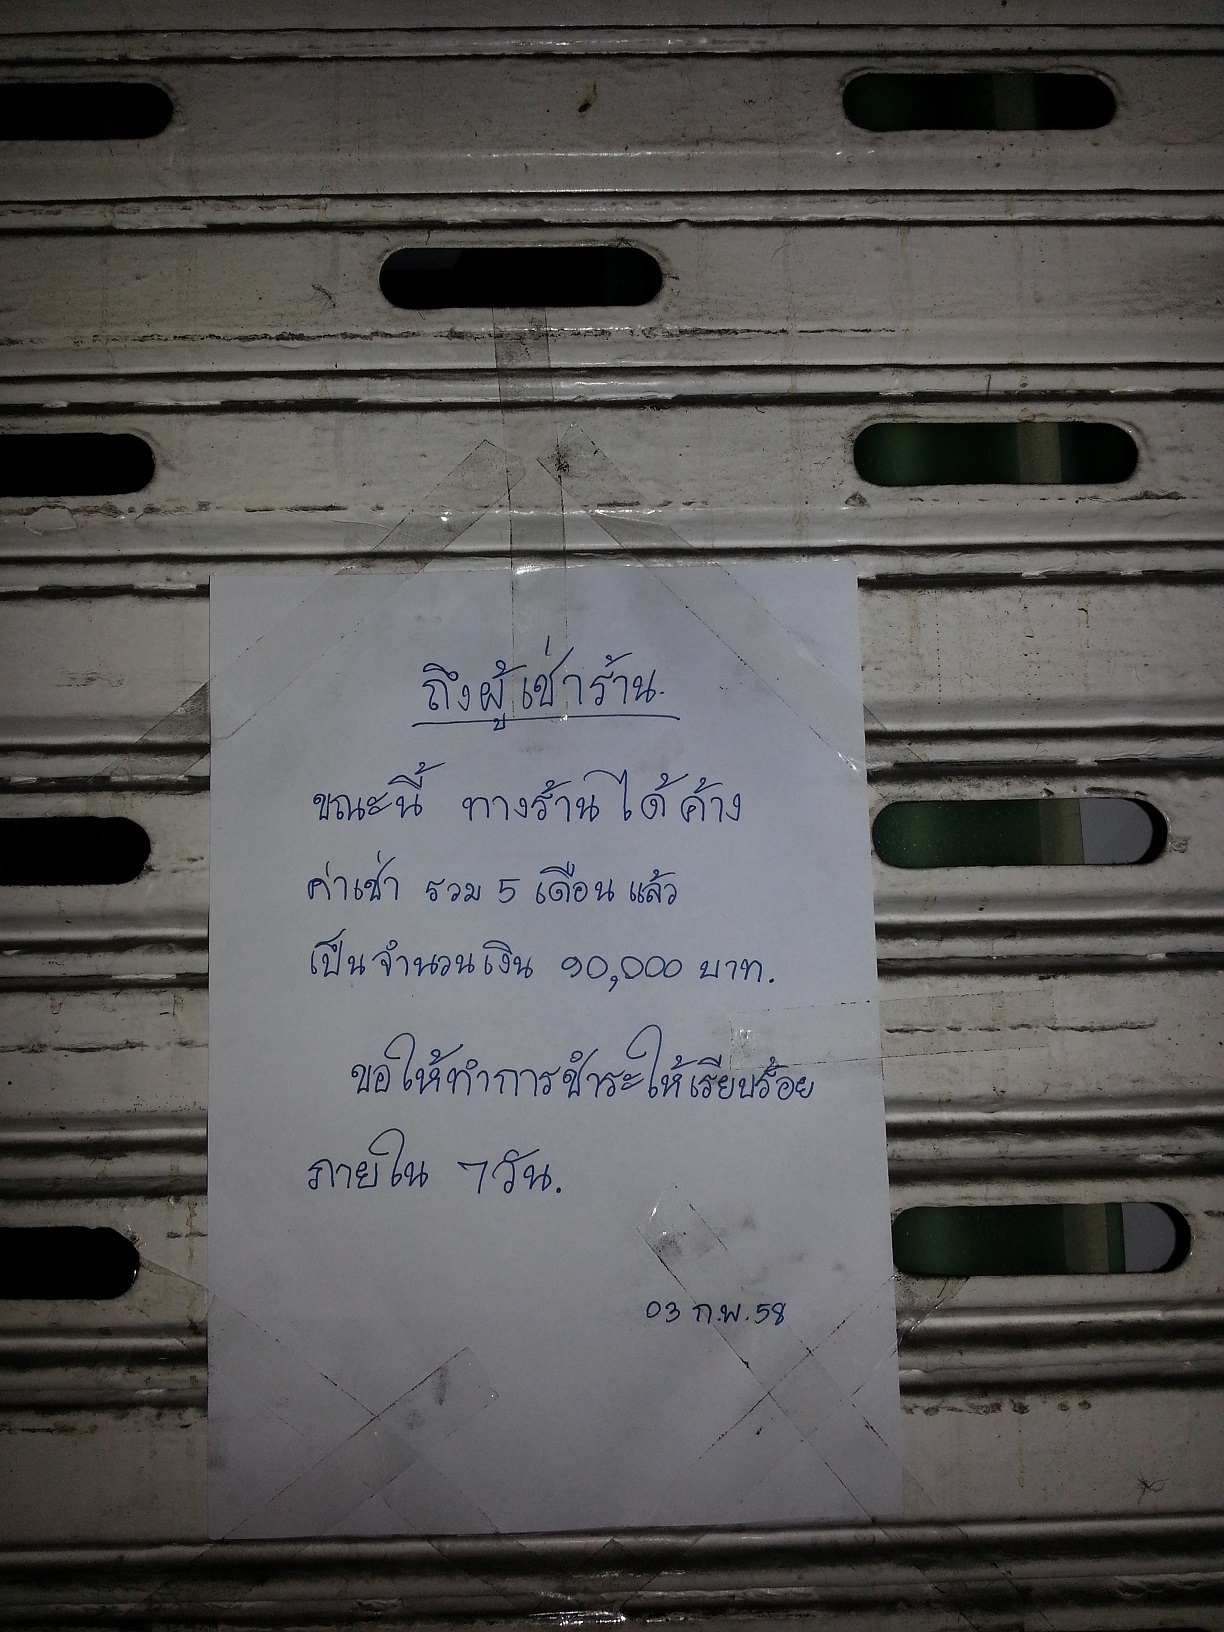 ถึงผู้เช่าร้าน.
ขณะนี้ ทางร้านได้ค้าง
ค่าเช่า รวม 5 เดือนแล้ว
เป็นจำนวนเงิน 90,000 บาท.
ขอให้ทำการชำระให้เรียบร้อย
ภายใน 7 วัน.
03 ก.พ. 58